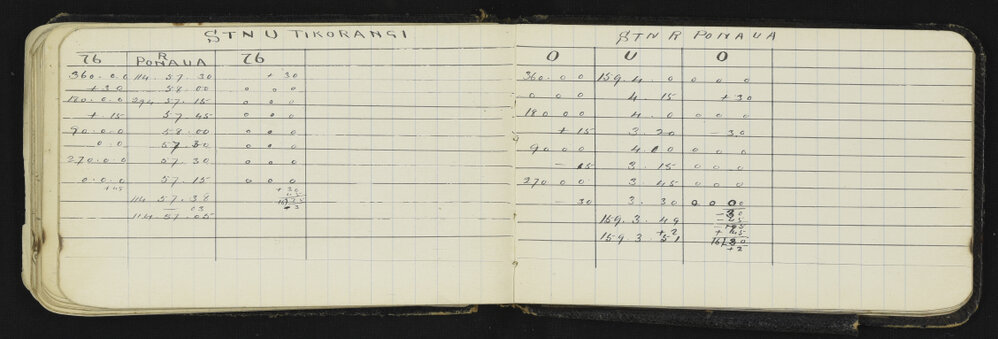 STN U TIKORANGI
76 R PONAUA 76
360.0.0 114.57.30 + 30
+ 30 58.00 0 0 0
180.0.0 294.57.15 0 0 0
+ 15 57.45 0 0 0
90.0.0 58.00 0 0 0
0.0 57.30 0 0 0
270.0.0 57.30 0 0 0
0.0.0 57.15 0 0 0
+45 + 30
114.57.38
- 03 + 3
114.57.05
STN R PONAUA
0 U 0
360.0.0 159.4.0 0 0 0
0 0 0 4.15 + 30
180 0 0 4.0 0 0 0
+ 15 3.20 - 30
90 0 0 4.00 0 0 0
- 15 3.15 0 0 0
270 0 0 3.45 0 0 0
- 30 3.30 0 0 0
- 30
159.3.49
+ 2 + 45
159.3.51 16 30
+ 2